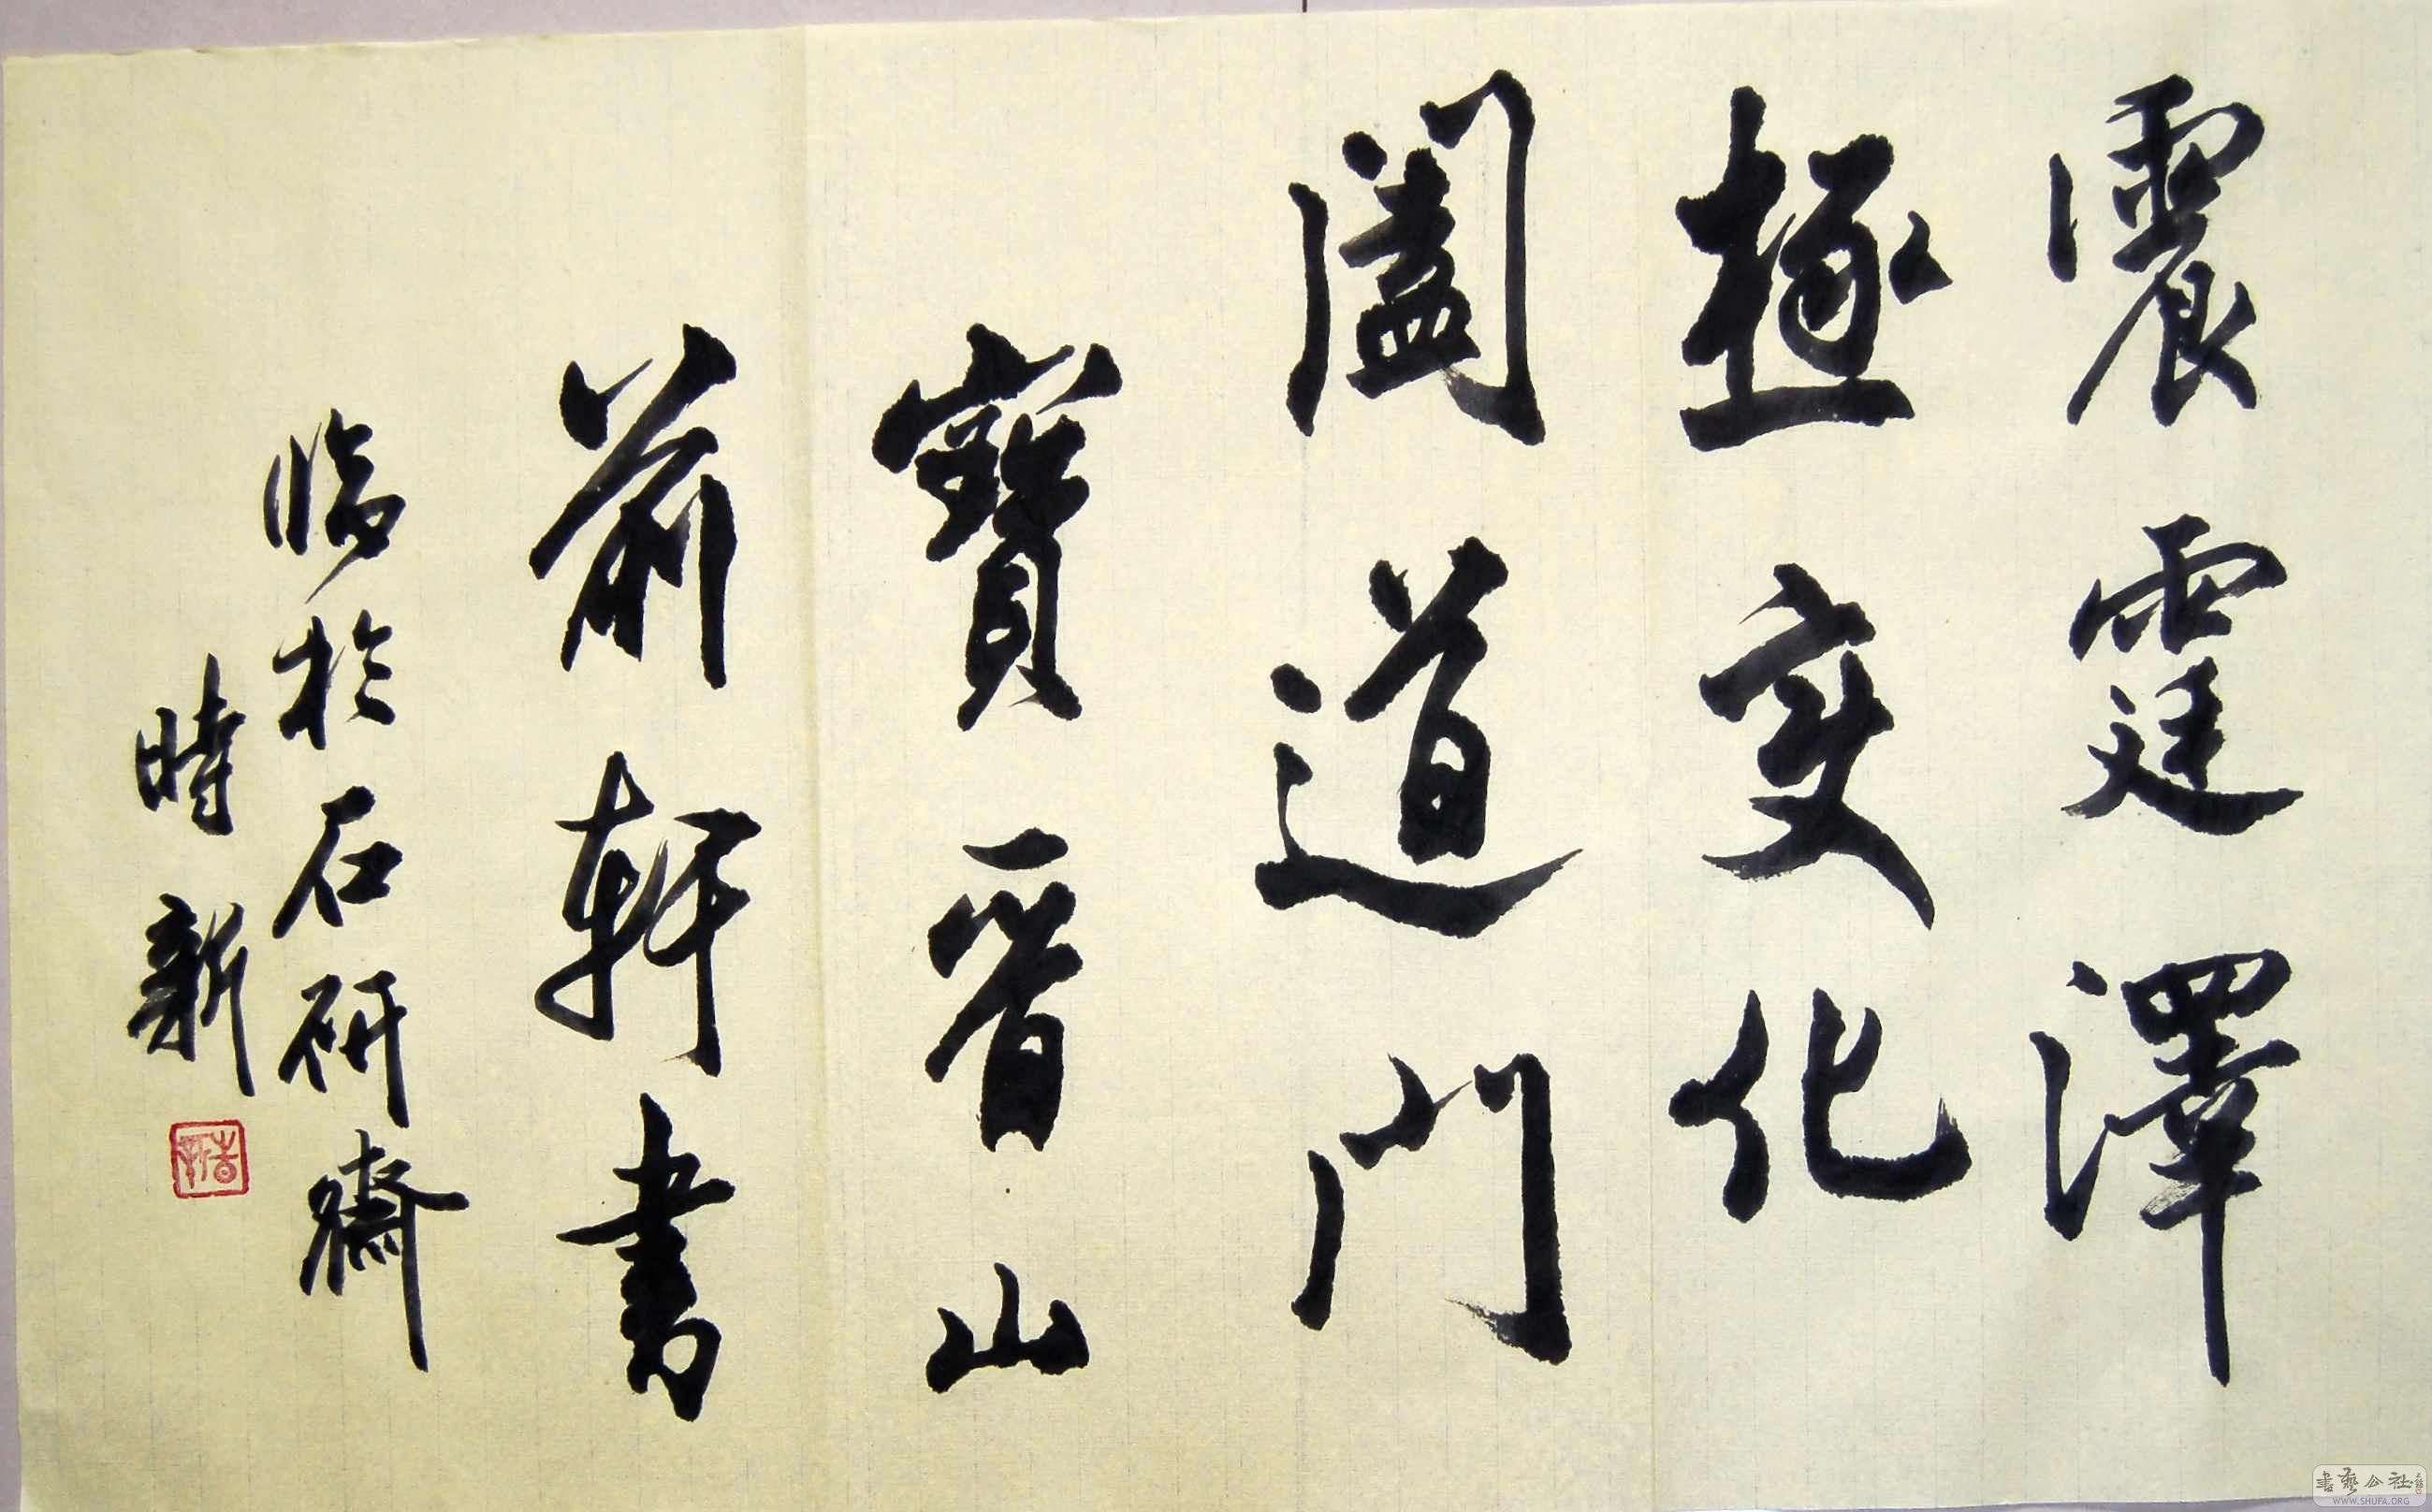 震霆澤
極變化
闔道門
寶晉山
前軒書
臨於石研齋
時新
書藝公社
WWW.SHUFA.ORG